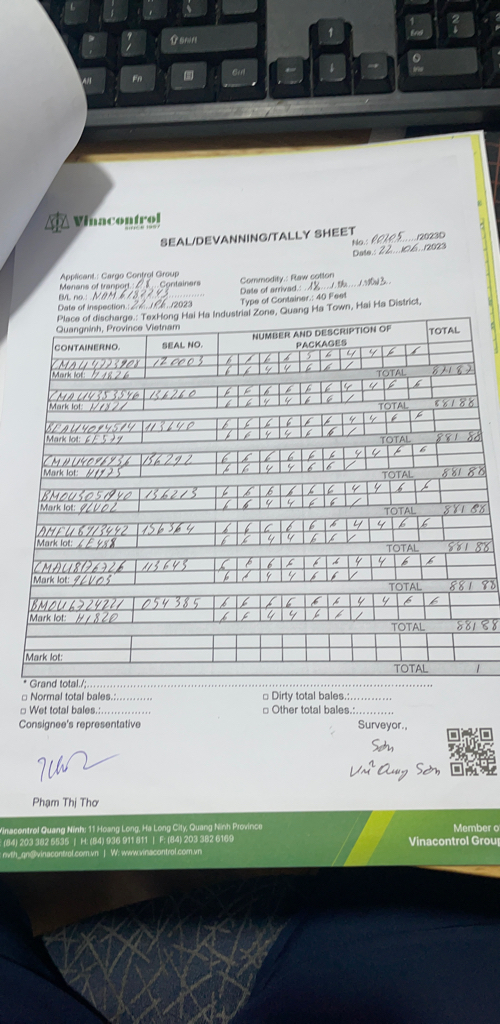 Vinacontrol
SINCE 1957
SEAL/DEVANNING/TALLY SHEET
No.: 00205..../2023D
Date.: 22...06../2023
Applicant.: Cargo Control Group
Menans of tranport.: 08...Containers
B/L no.: NAM6182243
Date of inspection.: 22./06./2023
Commodity.: Raw cotton
Date of arrived.:
Type of Container.: 40 Feet
Place of discharge.: TexHong Hai Ha Industrial Zone, Quang Ha Town, Hai Ha District,
Quangninh, Province Vietnam
CONTAINERNO. SEAL NO. NUMBER AND DESCRIPTION OF PACKAGES TOTAL
CMAU4223908 120003 6 6 6 6 5 6 4 4 6 6
Mark lot: H1826 6 6 4 4 6 6 /
TOTAL 87/87
CMAU4353546 136260 6 6 6 6 6 6 4 4 6 6
Mark lot: H1821 6 6 4 4 6 6 /
TOTAL 88/88
4094514 113640 6 6 6 6 6 6 4 4 6 6
Mark lot: 6E529 6 6 4 4 6 6 /
TOTAL 88/88
136292 6 6 6 6 6 6 4 4 6 6
Mark lot: H1925 6 6 4 4 6 6 /
TOTAL 88/88
BMOU5051940 136213 6 6 6 6 6 6 4 4 6 6
Mark lot: 9LV02 6 6 4 4 6 6 /
TOTAL 88/88
AMFU8913442 136364 6 6 6 6 6 6 4 4 6 6
Mark lot: 6E458 6 6 4 4 6 6 /
TOTAL 88/88
CMAU8176726 113643 6 6 6 6 6 6 4 4 6 6
Mark lot: 9LV03 6 6 4 4 6 6 /
TOTAL 88/88
BMOU6724221 054385 6 6 6 6 6 6 4 4 6 6
Mark lot: H1820 6 6 4 4 6 6 /
TOTAL 88/88
Mark lot:
TOTAL /
* Grand total./:
□ Normal total bales.:........... □ Dirty total bales.:............
□ Wet total bales.:............... □ Other total bales.:...........
Consignee's representative Surveyor.,
Sơn
Vũ Quang Sơn
Phạm Thị Thơ
Vinacontrol Quang Ninh: 11 Hoang Long, Ha Long City, Quang Ninh Province
(84) 203 382 5535 | H: (84) 936 911 811 | F: (84) 203 382 6169
nvth_qn@vinacontrol.com.vn | W: www.vinacontrol.com.vn
Member of
Vinacontrol Group
Shift
Alt
Fn
Ctrl
1
End
2
0
Ins